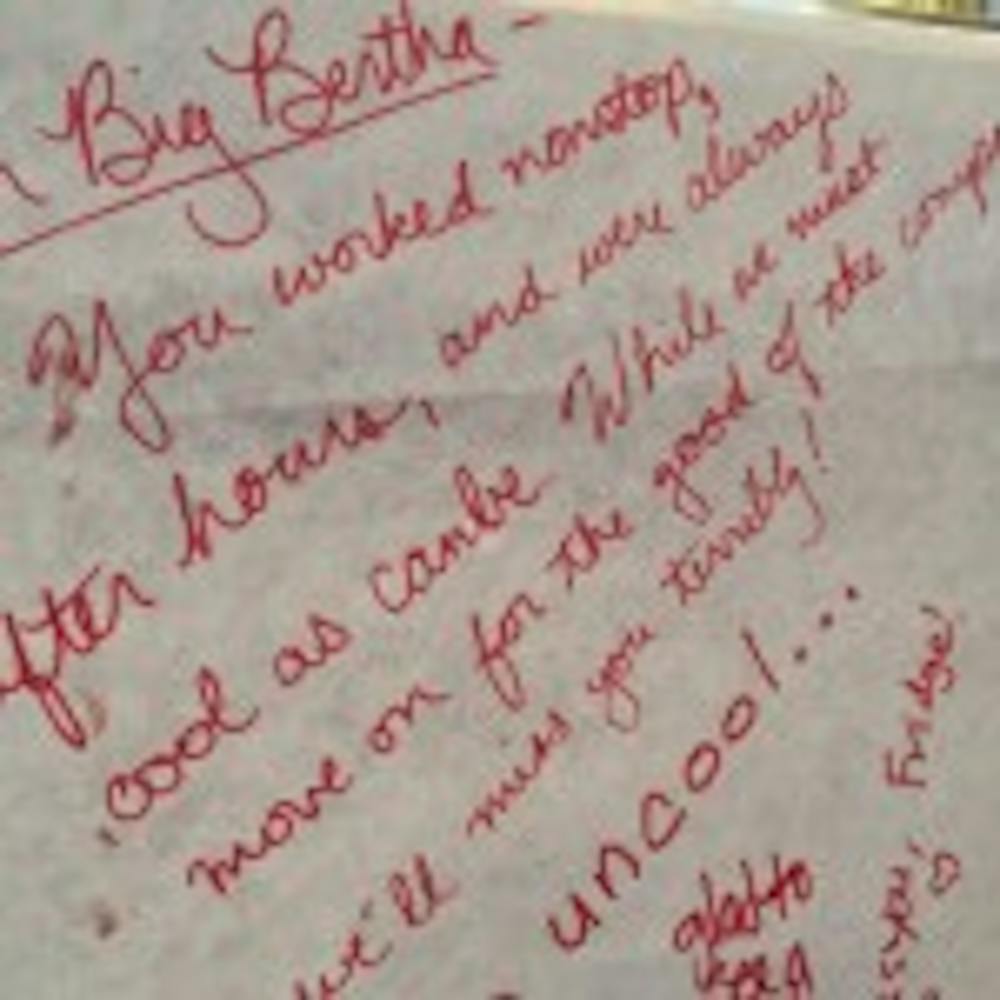 Big Bertha -
You worked nonstop,
after hours, and were always
cool as canbe While we must
move on for the good of the comp
we'll miss you terribly!
uncool...
Fridge